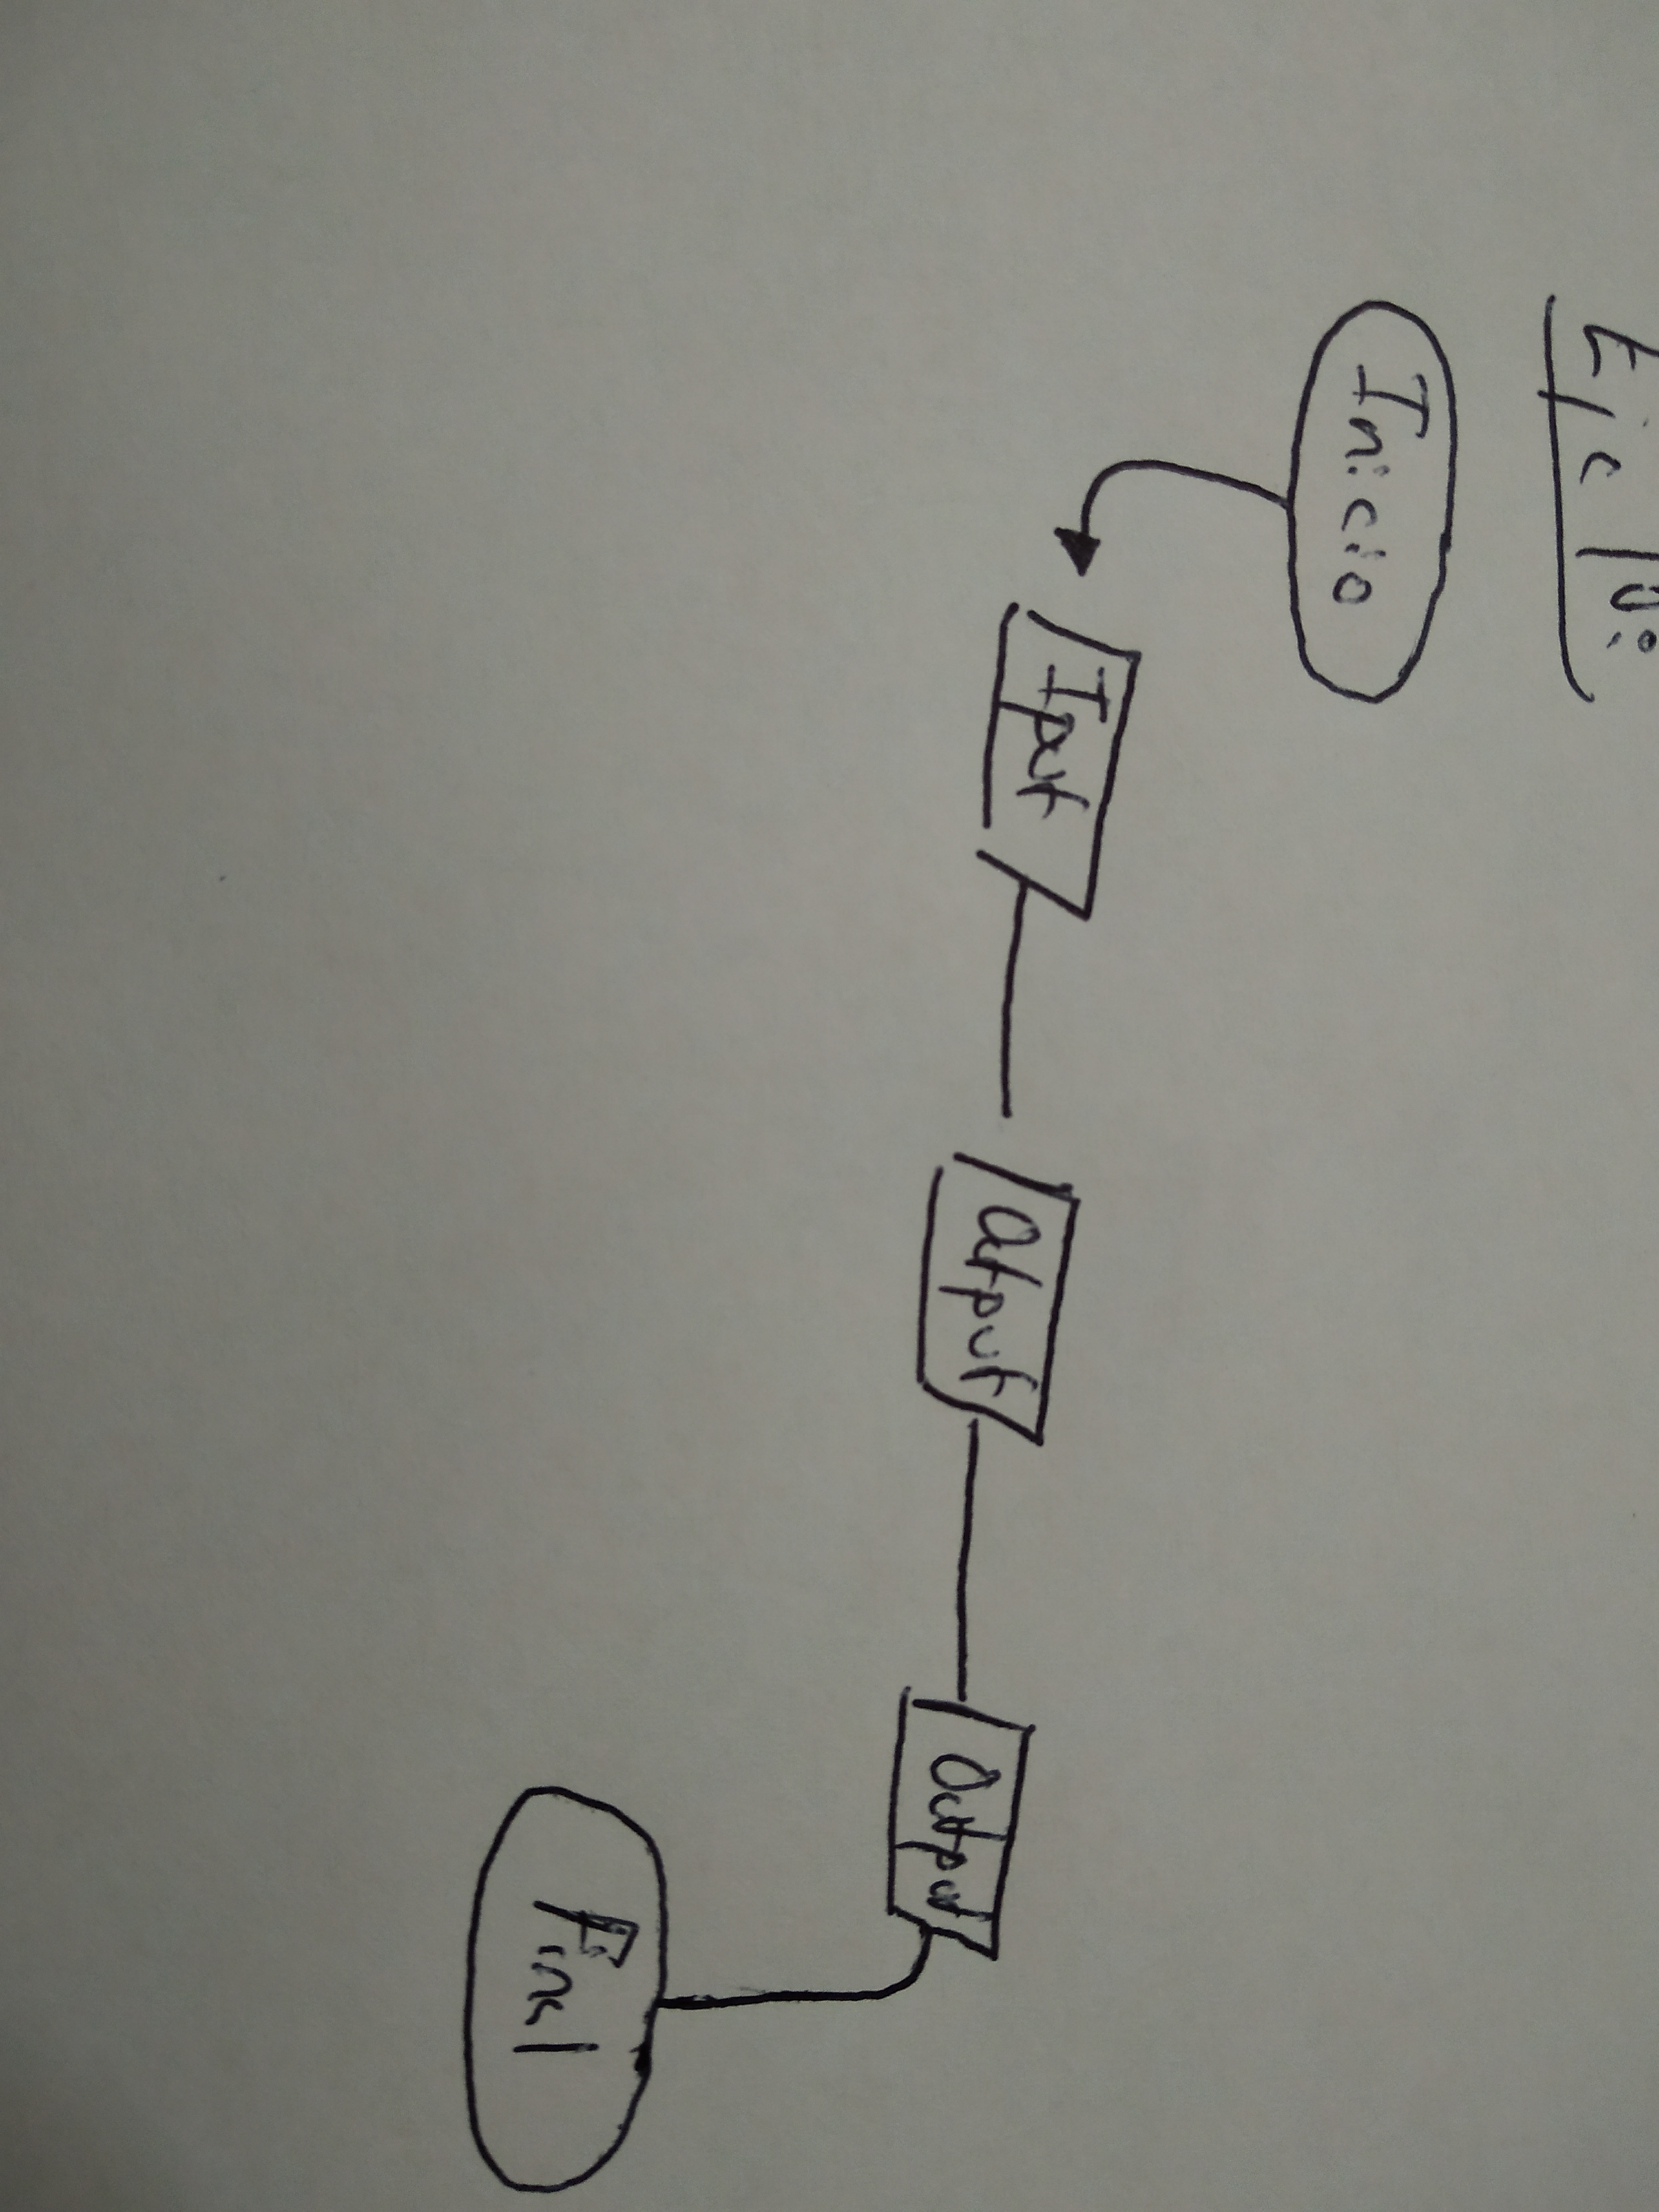 Ejc 10:
Inicio
Iput
Output
Output
Final